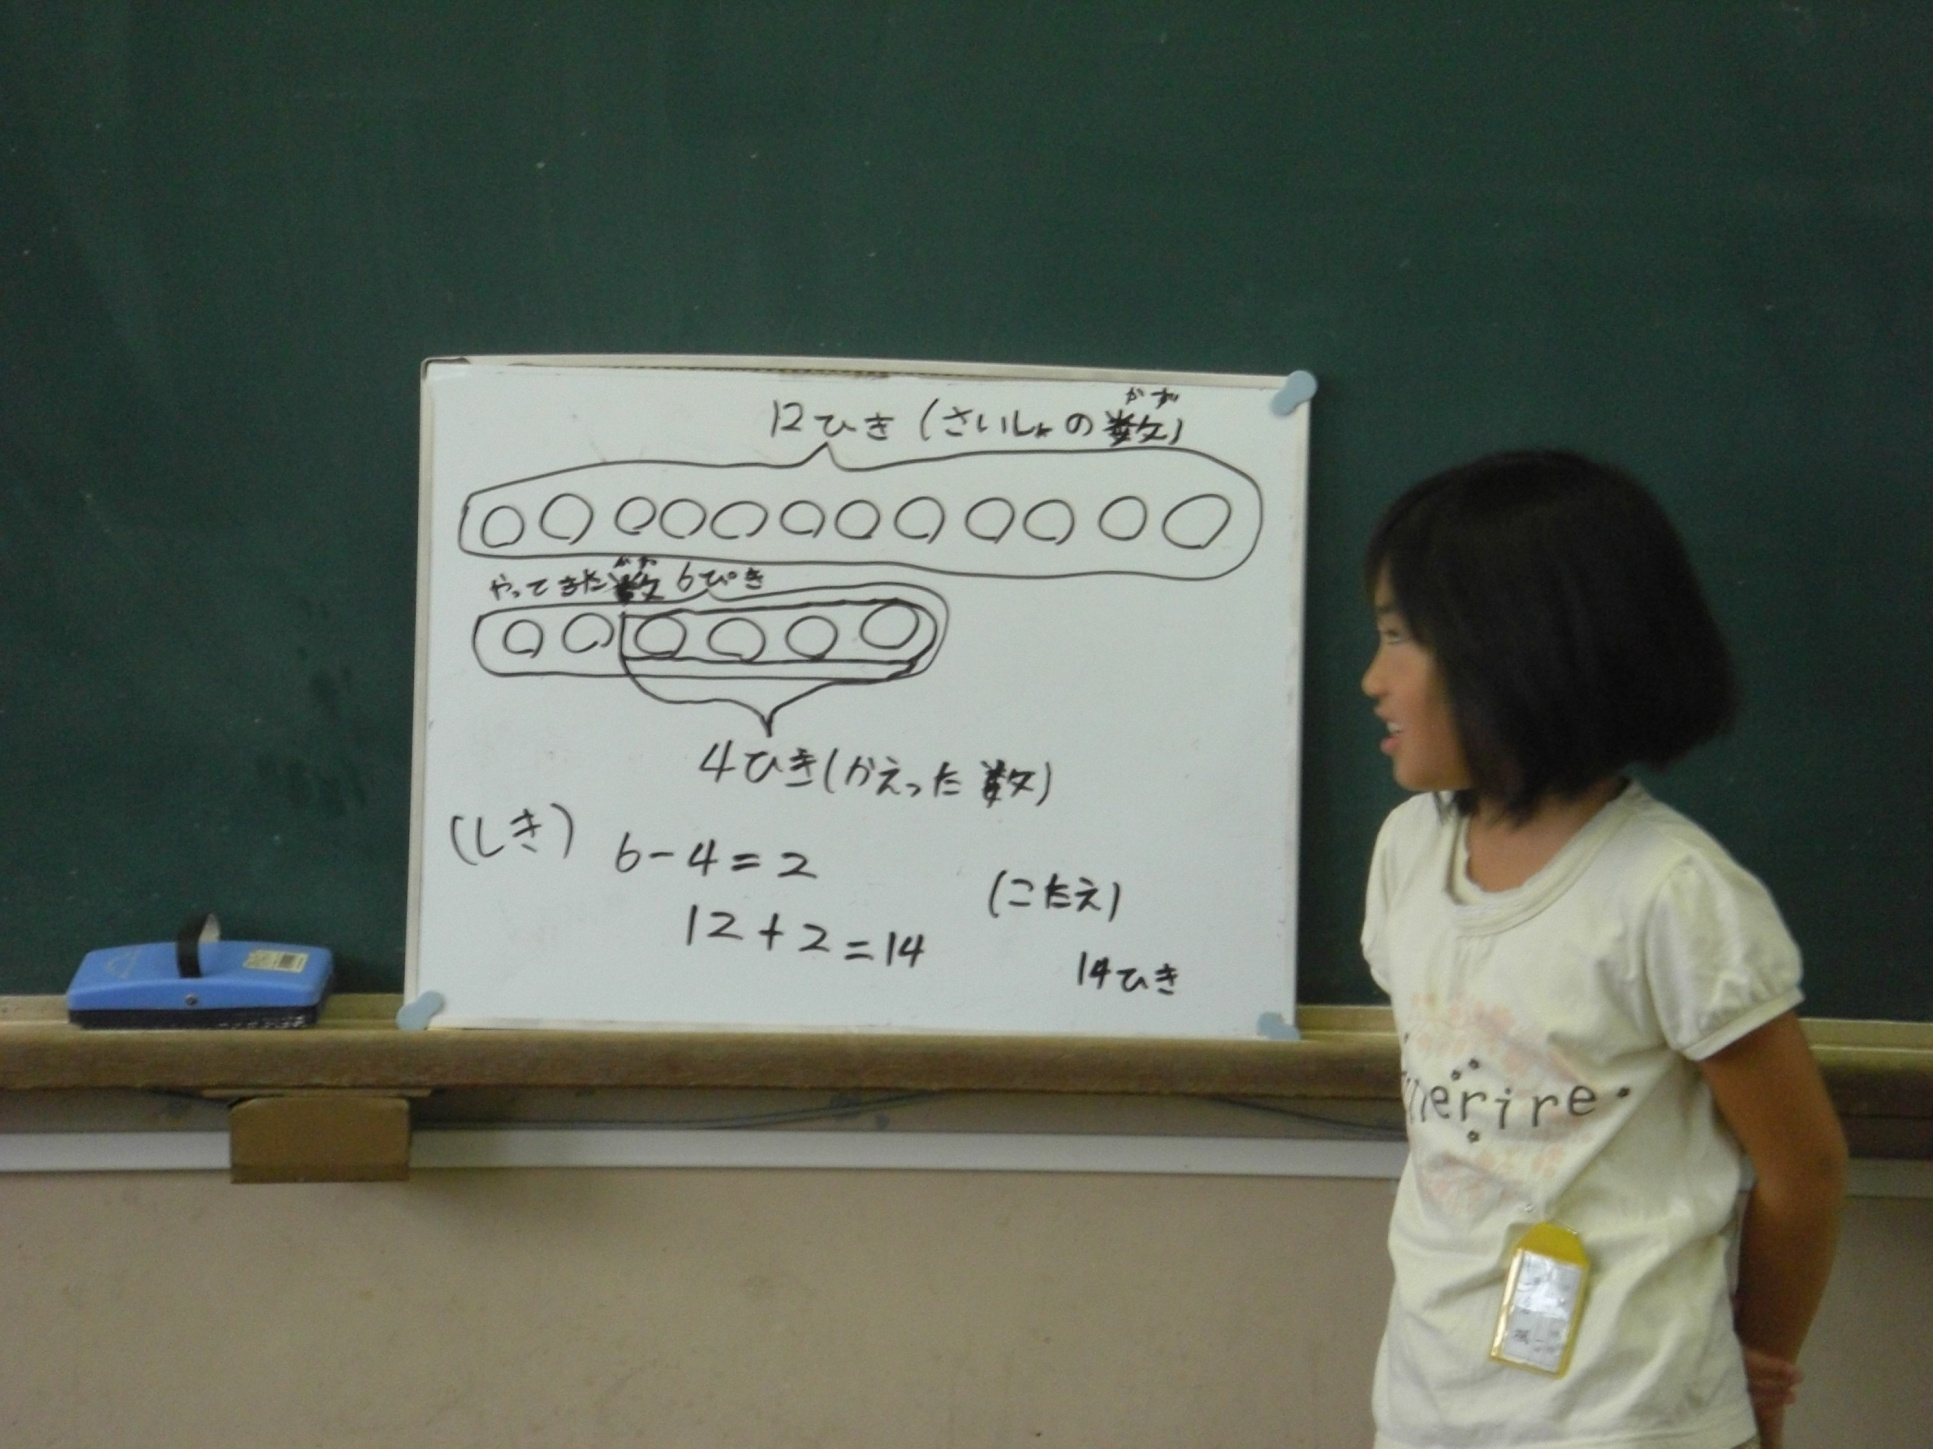 12ひき(さいしょの数)
かず
やってきた数 6ぴき
かず
4ひき(かえった数)
(しき)
6-4=2
12+2=14
(こたえ)
14ひき